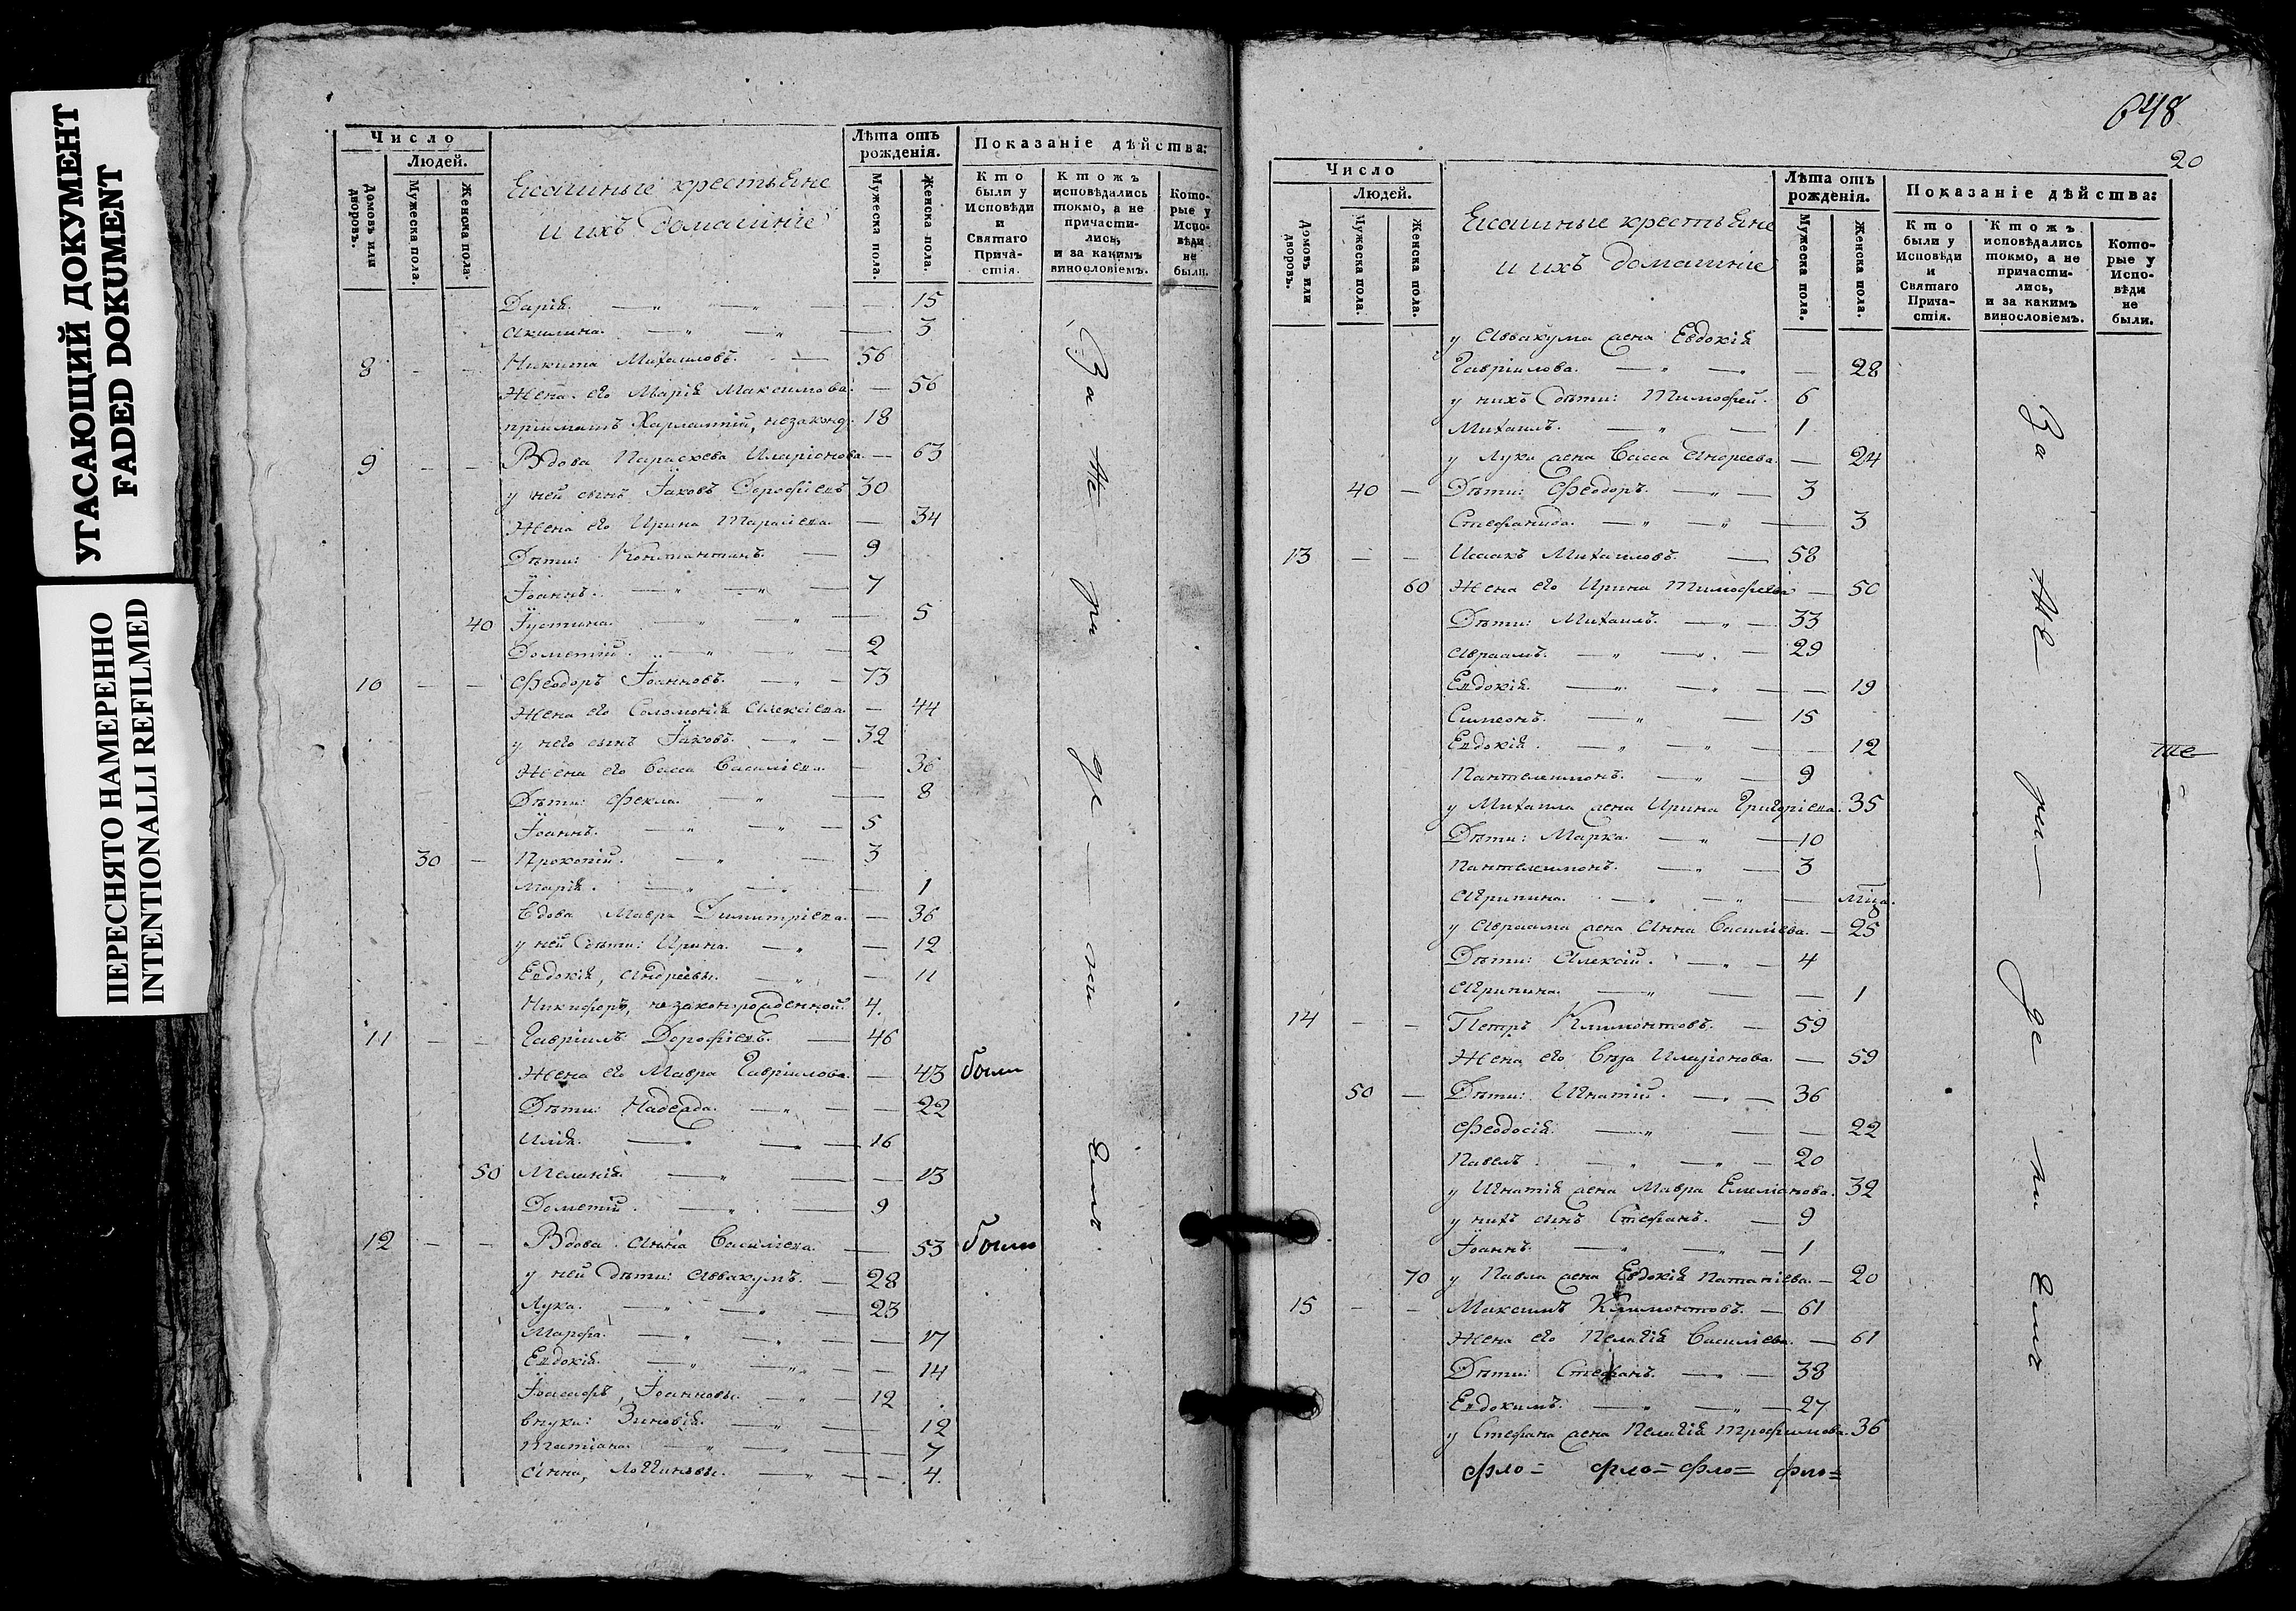 УГАСАЮЩИЙ ДОКУМЕНТ
FADED DOKUMENT
ПЕРЕСНЯТО НАМЕРЕННО
INTENTIONALLI REFILMED
Число
Людей.
Домовъ или дворовъ.
Мужеска пола.
Женска пола.
Ясашные крестьяне
и ихъ домашніе
Лѣта отъ рожденія.
Мужеска пола.
Женска пола.
Показаніе дѣйства:
Кто были у Исповѣди и Святаго Причастія.
Ктожъ исповѣдались токмо, а не причастились, и за какимъ винословіемъ.
Которые у Исповѣди не были.
Дарія. — 15
Акилина. — 3
8 Никита Михаиловъ. — 56
Жена его Марія Максимова. — 56
пріиматъ Харлампій, незаконо. 18
9 Вдова Параскева Иларіонова — 63
у ней сынъ Іаковъ Дорофіевъ 30
Жена его Ирина Тарасіева. — 34
Дѣти: Константинъ. — 9
Іоаннъ. — 7
40 Іустина. — 5
Дометій. — 2
10 Феодоръ Іоанновъ. — 73
Жена его Соломонія Алексіева. — 44
у него сынъ Іаковъ. — 32
Жена его Васса Василіева. — 36
Дѣти: Фекла. — 8
Іоаннъ. — 5
30 Прокопій. — 3
Марія. — 1
Вдова Мавра Димитріева. — 36
у ней дѣти: Ирина. — 12
Евдокія, Андреевы. — 11
Никифоръ, незаконорожденной. 4.
11 Гавріилъ Дорофіевъ. — 46
Жена его Мавра Гавріилова. — 43 были
Дѣти: Надежда. — 22
Илія. — 16
50 Меланія. — 13
Дометій. — 9
12 Вдова Анна Василіева. — 53 были
у ней дѣти: Аввакумъ. — 28
Лука. — 23
Марфа. — 17
Евдокія. — 14
Іоасафъ, Іоанновы. — 12
внуки: Зиновія. — 12
Татіана. — 7
Анна, Логгиновы. — 4.
За не ра де ні емъ
648
20
Число
Людей.
Домовъ или дворовъ.
Мужеска пола.
Женска пола.
Ясашные крестьяне
и ихъ домашніе
Лѣта отъ рожденія.
Мужеска пола.
Женска пола.
Показаніе дѣйства:
Кто были у Исповѣди и Святаго Причастія.
Ктожъ исповѣдались токмо, а не причастились, и за какимъ винословіемъ.
Которые у Исповѣди не были.
у Аввакума жена Евдокія
Гавріилова. — 28
у нихъ дѣти: Тимофей. 6
Михаилъ. — 1
у Луки жена Васса Андреева. — 24
40 — Дѣти: Феодоръ. — 3
Стефанида. — 3
13 Исаакъ Михаиловъ. — 58
60 Жена его Ирина Тимофеева — 50
Дѣти: Михаилъ. — 33
Авраамъ. — 29
Евдокія. — 19
Симеонъ. — 15
Евдокія. — 12
Пантелеимонъ. — 9
у Михаила жена Ирина Григоріева. 35
Дѣти: Марка. — 10
Пантелеимонъ. — 3
Агрипина. — мца.
у Авраама жена Анна Василіева. — 25
Дѣти: Алексій. — 4
Агрипина. — 1
14 Петръ Климонтовъ. — 59
Жена его Иларіонова. — 59
50 — Дѣти: Игнатій. — 36
Феодосія. — 22
Павелъ. — 20
у Игнатія жена Мавра Емеліанова. 32
у нихъ сынъ Стефанъ. — 9
Іоаннъ. — 1
70 у Павла жена Евдокія — 20
15 Максимъ Климонтовъ. — 61
Жена его Пелагія Василіева. — 61
Дѣти: Стефанъ. — 38
Евдокимъ. — 27
у Стефана жена Пелагія Трофимова. 36
фло= фло= фло= фло=
За не ра де ні емъ